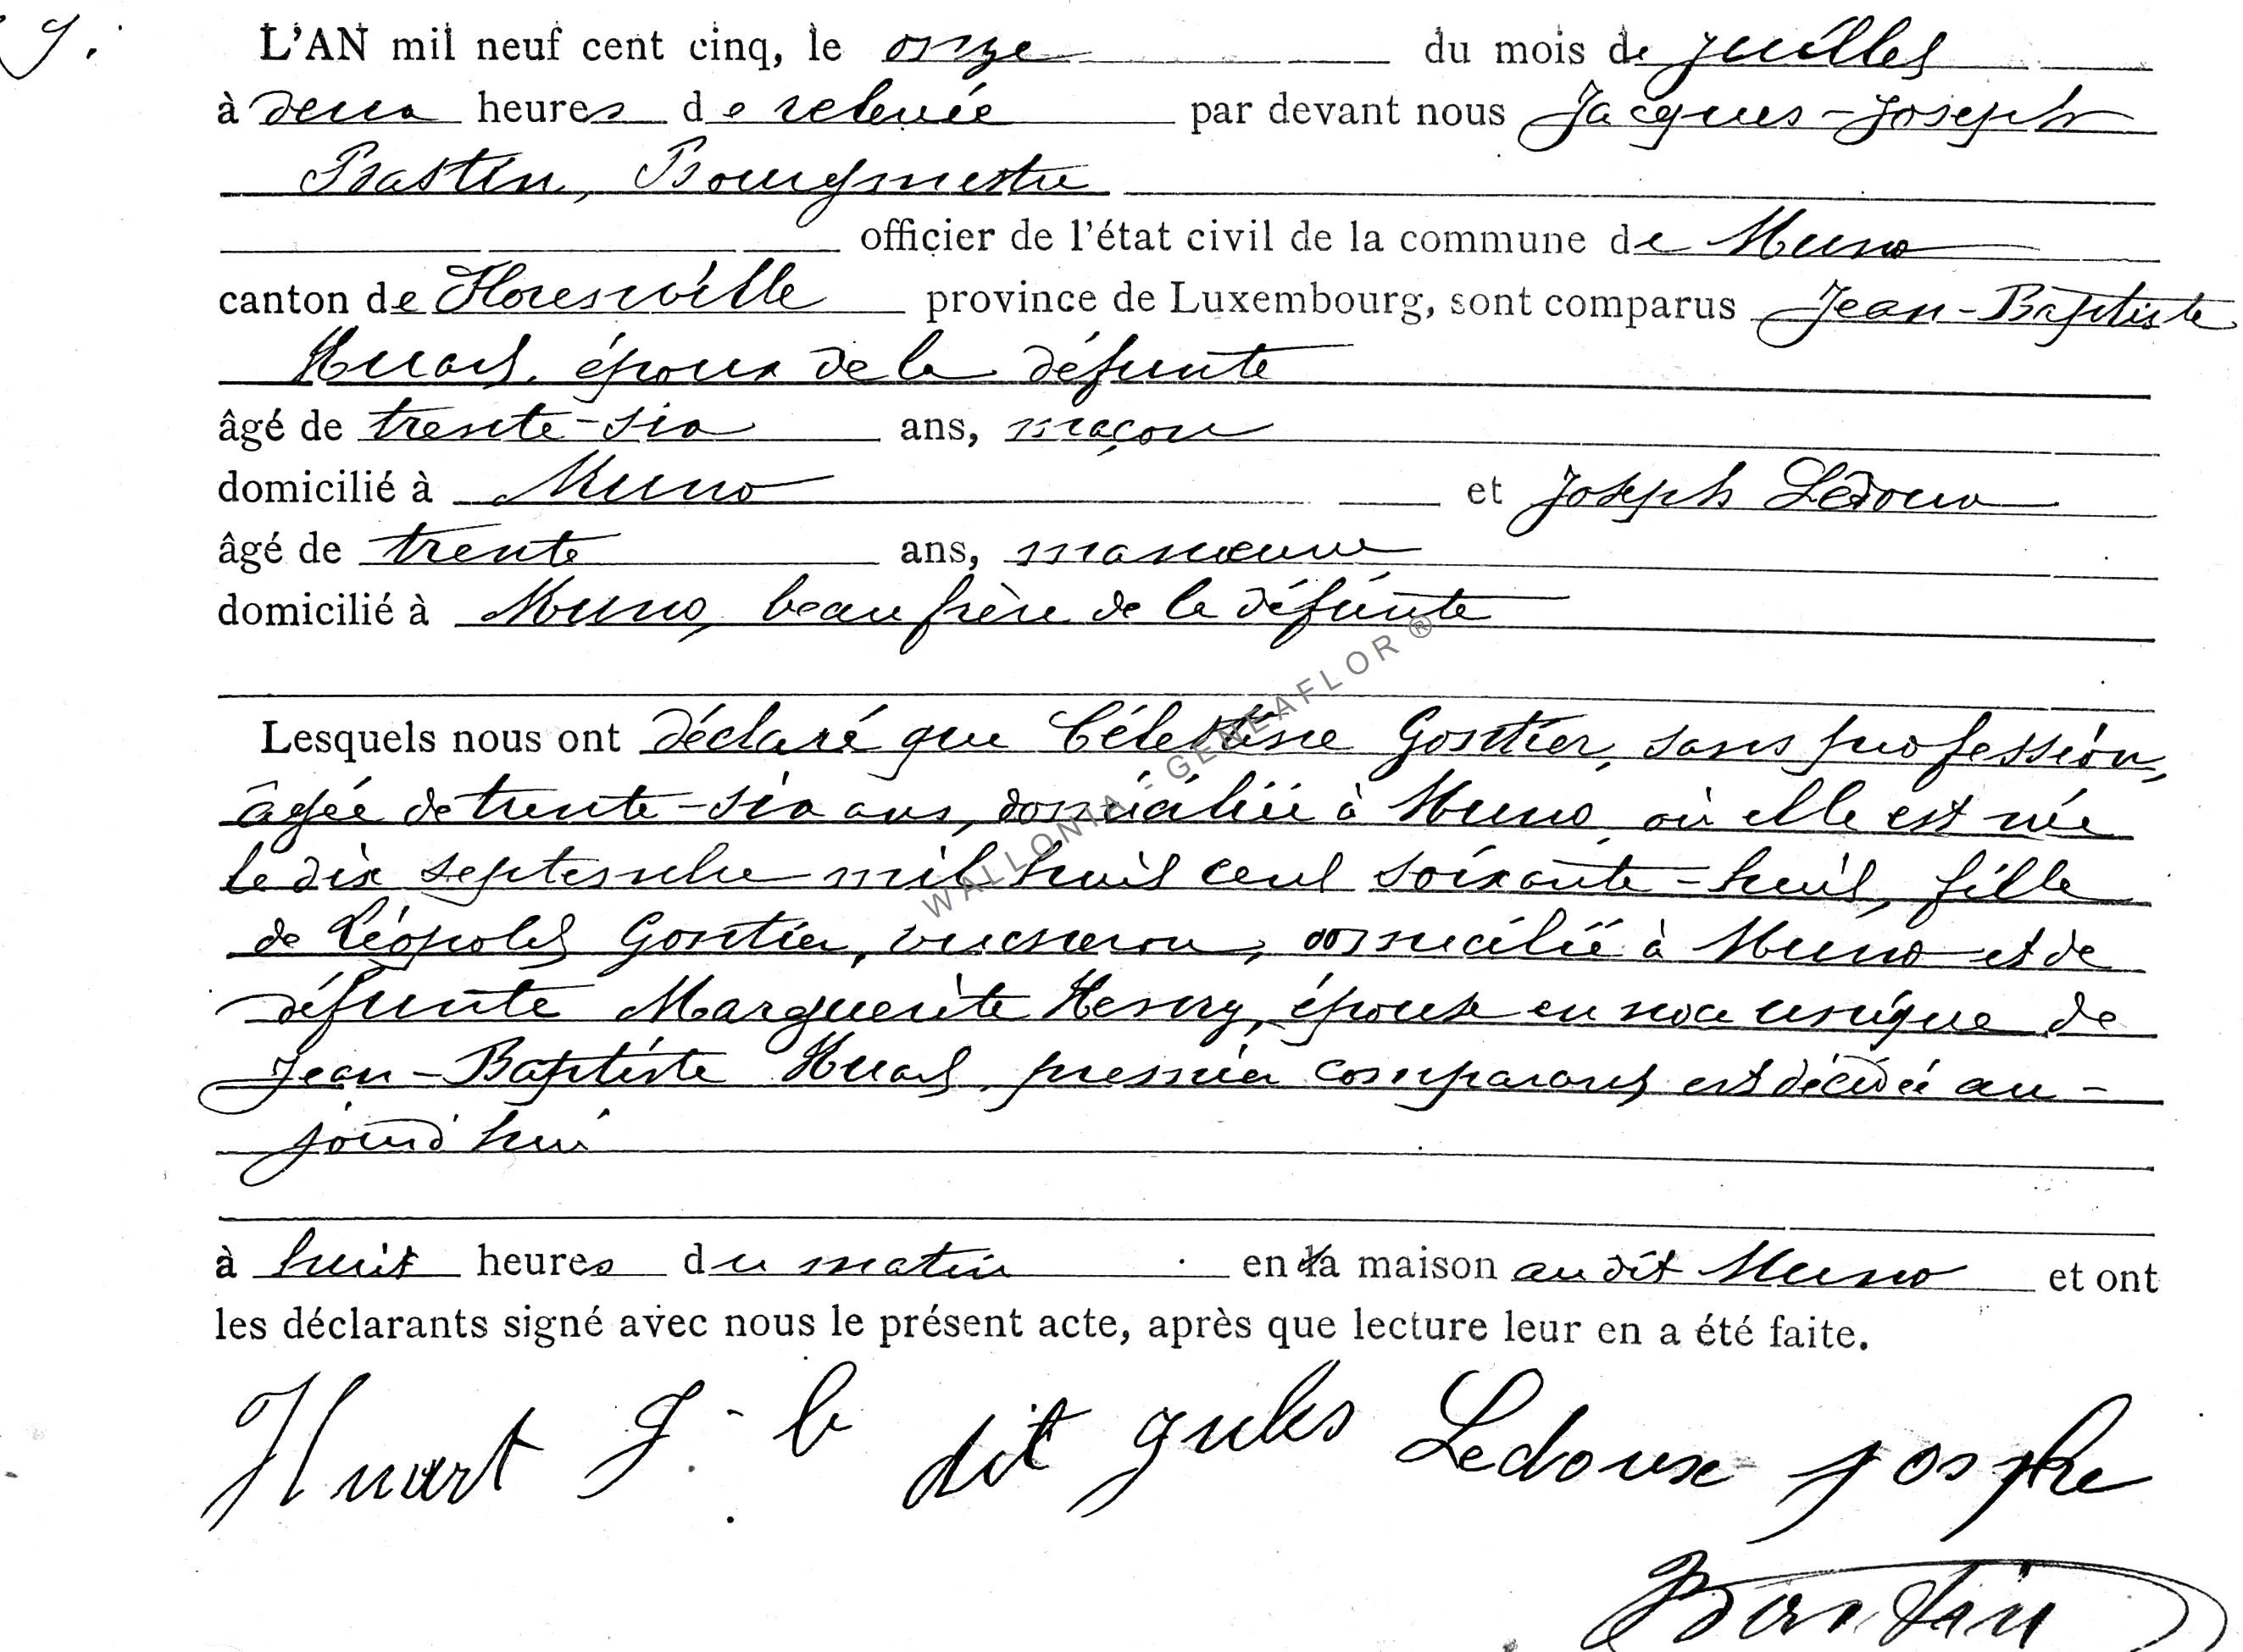 9.
L'AN mil neuf cent cinq, le onze du mois de juillet
à deux heures de relevée par devant nous Jacques-Joseph
Bastin, Bourgmestre
officier de l'état civil de la commune de Muno
canton de Florenville province de Luxembourg, sont comparus Jean-Baptiste
Huart, époux de la défunte
âgé de trente-six ans, maçon
domicilié à Muno et Joseph Ledoux
âgé de trente ans, manœuvre
domicilié à Muno, beau frère de la défunte
Lesquels nous ont déclaré que Célestine Gontier, sans profession,
âgée de trente-six ans, domiciliée à Muno, où elle est née
le dix septembre mil huit cent soixante-huit, fille
de Léopold Gontier, bucheron, domicilié à Muno et de
défunte Marguerite Henry, épouse en noce unique de
Jean-Baptiste Huart, premier comparant, est décédée au-
jourd'hui
à huit heures du matin en la maison au dit Muno et ont
les déclarants signé avec nous le présent acte, après que lecture leur en a été faite.
Huart J. b dit jules Ledoux josphe
Bastin
WALLONIA - GENEAFLOR ®